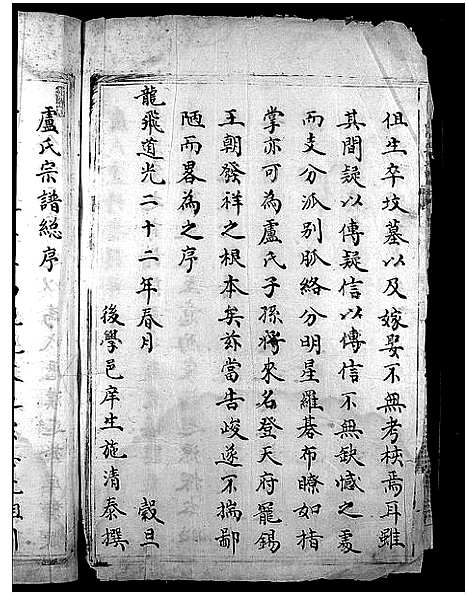 但生卒坟墓以及嫁娶不無考核焉耳雖
其間疑以傳疑信以傳信不無缺憾之處
而支分派別脉絡分明星羅碁布瞭如指
掌亦可為盧氏子孫將來名登天府寵錫
王朝發祥之根本矣茲當告竣遂不揣鄙
陋而畧為之序
龍飛道光二十二年春月 穀旦
後學邑庠生施清泰撰
盧氏宗譜總序